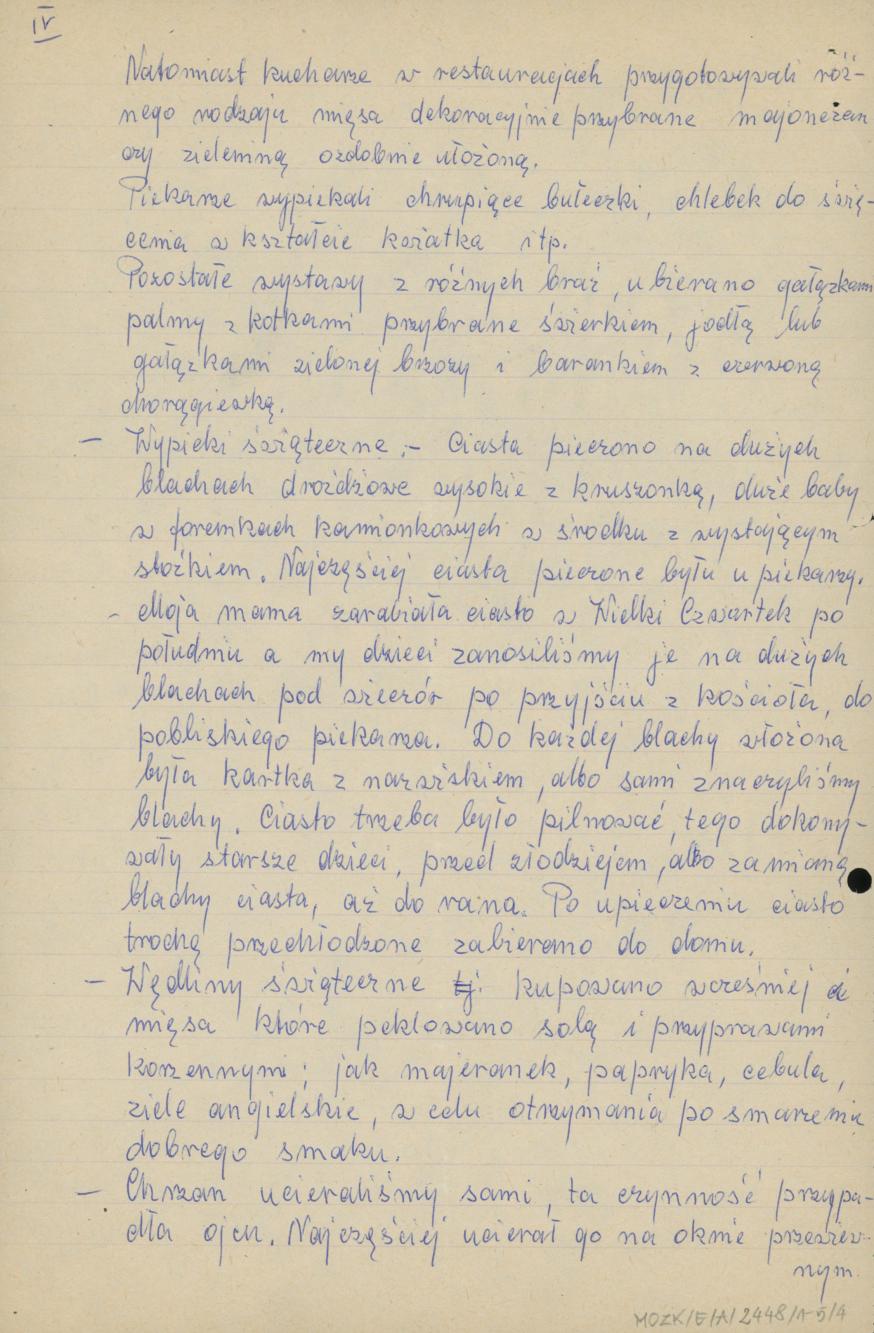 IV
Natomiast kucharze w restauracjach przygotowywali róż-
nego rodzaju mięsa dekoracyjnie przybrane majonezem
czy zieleniną ozdobnie ułożoną.
Piekarze wypiekali chrupiące bułeczki, chlebek do świę-
cenia w kształcie koziatka itp.
Pozostałe wystawy z różnych braż, ubierano gałązkami
palmy z kotkami przybrane świerkiem, jodłą lub
gałązkami zielonej brzozy i barankiem z czerwoną
chorągiewką.
- Wypieki świąteczne :- Ciasta pieczono na dużych
blachach drożdżowe wysokie z kruszonką, duże baby
w foremkach kamionkowych w środku z wystającym
stożkiem. Najczęściej ciasta pieczone były u piekarzy.
- Moja mama zarabiała ciasto w Wielki Czwartek po
południu a my dzieci zanosiliśmy je na dużych
blachach pod wieczór po przyjściu z kościoła, do
pobliskiego piekarza. Do każdej blachy włożona
była kartka z nazwiskiem, albo sami znaczyliśmy
blachy. Ciasto trzeba było pilnować, tego dokony-
wały starsze dzieci, przed złodziejem, albo zamianą
blachy ciasta, aż do rana. Po upieczeniu ciasto
trochę przechłodzone zabierano do domu.
- Wędliny świąteczne tj. kupowano wcześniej a
mięsa które peklowano solą i przyprawami
korzennymi; jak majeranek, papryka, cebula,
ziele angielskie, w celu otrzymania po smażeniu
dobrego smaku.
- Chrzan ucieraliśmy sami, ta czynność przypa-
dła ojcu. Najczęściej ucierał go na oknie przeziew-
nym.
MOZK/E/A/2448/A-5/4